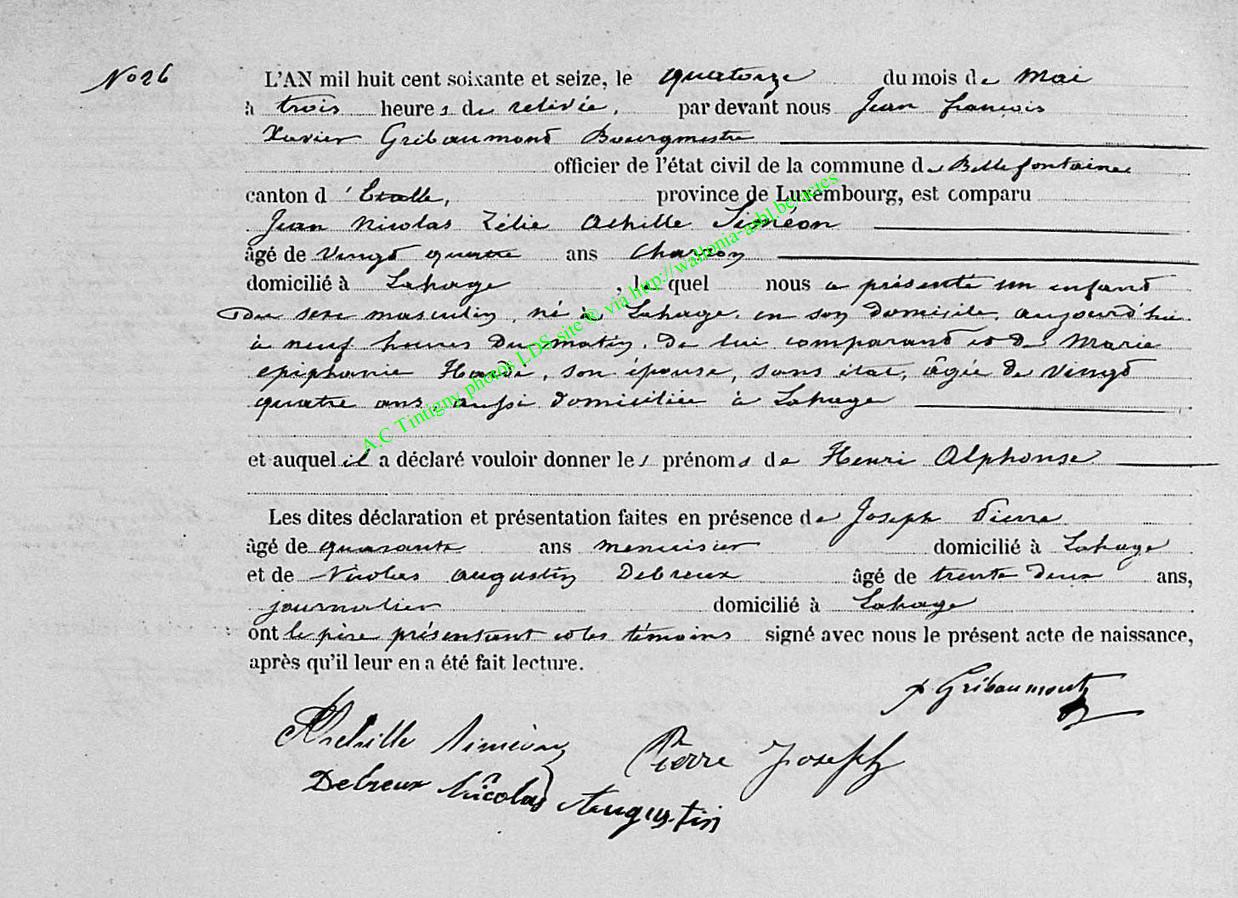 No 26
L'AN mil huit cent soixante et seize, le quatorze du mois de Mai
à trois heures de relevée, par devant nous Jean François
Xavier Gribaumont Bourgmestre
officier de l'état civil de la commune de Bellefontaine
canton d'Etalle, province de Luxembourg, est comparu
Jean Nicolas Zélie Achille Siméon
âgé de vingt quatre ans Charron
domicilié à Lahage, lequel nous a présenté un enfant
du sexe masculin, né à Lahage, en son domicile, aujourd'hui
à neuf heures du matin, de lui comparant et de Marie
épiphanie Hardi, son épouse, sans état, âgée de vingt
quatre ans, aussi domiciliée à Lahage
et auquel il a déclaré vouloir donner les prénoms de Henri Alphonse
Les dites déclaration et présentation faites en présence de Joseph Pierre
âgé de quarante ans menuisier domicilié à Lahage
et de Nicolas Augustin Debreux âgé de trente deux ans,
journalier domicilié à Lahage
ont le père présentant et les témoins signé avec nous le présent acte de naissance,
après qu'il leur en a été fait lecture.
Gribaumont
Achille Siméon Pierre Joseph
Debreux Nicolas Augustin
A.C Tintigny photos LDS site © via http://wallonia-asbl.be/actes